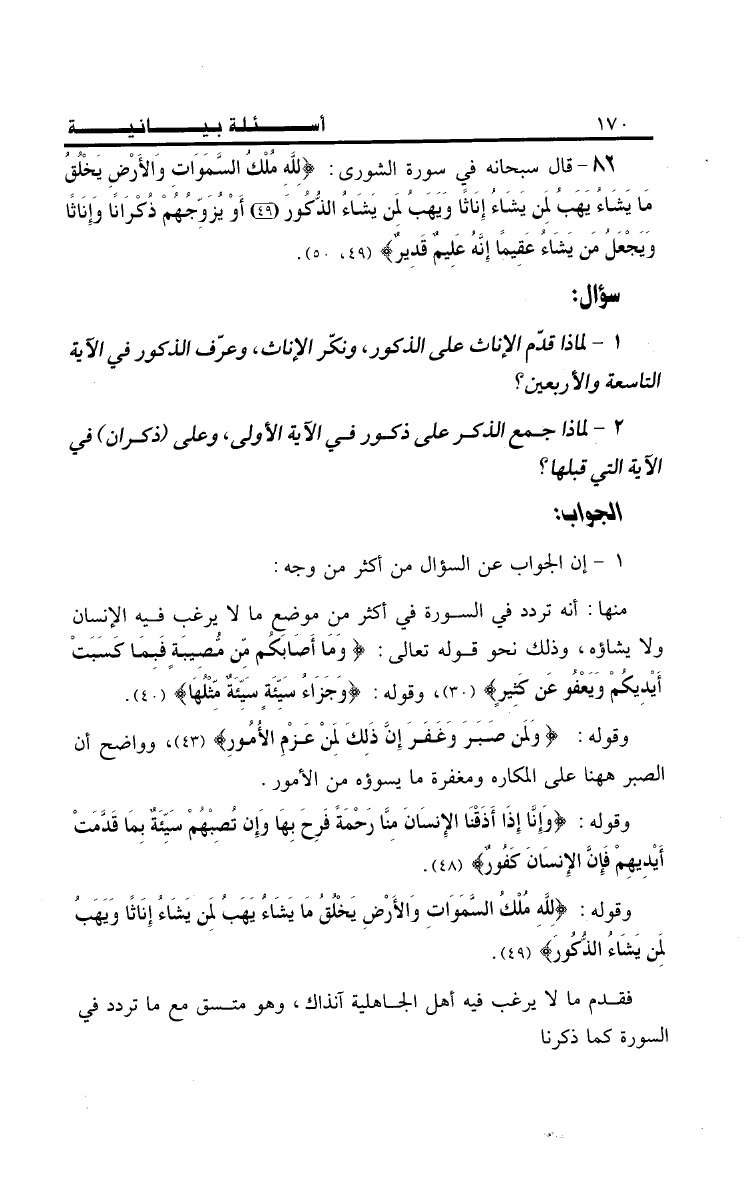 ١٧٠ أسئلة بيانية
٨٢- قال سبحانه في سورة الشورى : ﴿لِلَّهِ مُلْكُ السَّمَوَاتِ وَالأَرْضِ يَخْلُقُ
مَا يَشَاءُ يَهَبُ لِمَن يَشَاءُ إِنَاثًا وَيَهَبُ لِمَن يَشَاءُ الذُّكُورَ (٤٩) أَوْ يُزَوِّجُهُمْ ذُكْرَانًا وَإِنَاثًا
وَيَجْعَلُ مَن يَشَاءُ عَقِيمًا إِنَّهُ عَلِيمٌ قَدِيرٌ﴾ (٤٩، ٥٠).
سؤال:
١ - لماذا قدّم الإناث على الذكور، ونكّر الإناث، وعرّف الذكور في الآية
التاسعة والأربعين؟
٢ - لماذا جمع الذكر على ذكور في الآية الأولى، وعلى (ذكران) في
الآية التي قبلها؟
الجواب:
١ - إن الجواب عن السؤال من أكثر من وجه :
منها : أنه تردد في السورة في أكثر من موضع ما لا يرغب فيه الإنسان
ولا يشاؤه ، وذلك نحو قوله تعالى : ﴿ وَمَا أَصَابَكُم مِّن مُّصِيبَةٍ فَبِمَا كَسَبَتْ
أَيْدِيكُمْ وَيَعْفُو عَن كَثِيرٍ﴾ (٣٠)، وقوله : ﴿وَجَزَاءُ سَيِّئَةٍ سَيِّئَةٌ مِّثْلُهَا﴾ (٤٠).
وقوله : ﴿ وَلَمَن صَبَرَ وَغَفَرَ إِنَّ ذَلِكَ لَمِنْ عَزْمِ الأُمُورِ﴾ (٤٣)، وواضح أن
الصبر ههنا على المكاره ومغفرة ما يسوؤه من الأمور .
وقوله : ﴿وَإِنَّا إِذَا أَذَقْنَا الإِنسَانَ مِنَّا رَحْمَةً فَرِحَ بِهَا وَإِن تُصِبْهُمْ سَيِّئَةٌ بِمَا قَدَّمَتْ
أَيْدِيهِمْ فَإِنَّ الإِنسَانَ كَفُورٌ﴾ (٤٨).
وقوله : ﴿لِلَّهِ مُلْكُ السَّمَوَاتِ وَالأَرْضِ يَخْلُقُ مَا يَشَاءُ يَهَبُ لِمَن يَشَاءُ إِنَاثًا وَيَهَبُ
لِمَن يَشَاءُ الذُّكُورَ﴾ (٤٩).
فقدم ما لا يرغب فيه أهل الجاهلية آنذاك ، وهو متسق مع ما تردد في
السورة كما ذكرنا